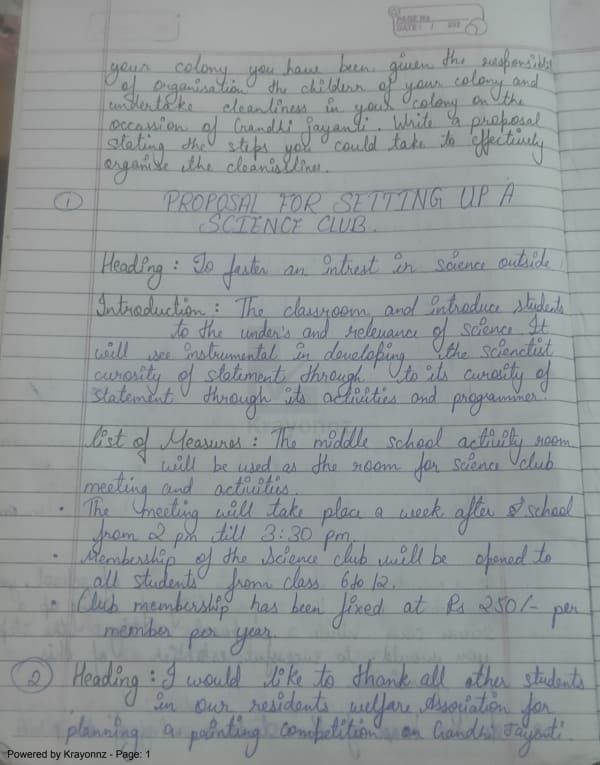 PAGE No.
DATE: / / 202
your colony you have been given the responsibl
of organisation the childern of your colony and
undertake cleanliness in your colony on the
occassion of Gandhi Jayanti. Write a proposal
stating the steps you could take to effectively
organise the cleanisliner.
① PROPOSAL FOR SETTING UP A
SCIENCE CLUB.
Heading : To faster an intrest in science outside
Introduction : The classroom and introduce students
to the under's and relevance of science It
will see instrumental in developing the scienctist
curosity of statement through to its curosity of
statement through its activities and programmer.
Krayonnz
list of Measures : The middle school activity room
will be used as the room for science club
meeting and activities.
• The meeting will take place a week after school
from 2 pm till 3:30 pm
• Membership of the Science club will be opened to
all students from class 6 to 12.
• Club membership has been fixed at Rs 250/- per
member per year.
② Heading : I would like to thank all other students
in our residents welfare Association for
planning a painting competition on Gandhi Jayanti.
Powered by Krayonnz - Page: 1